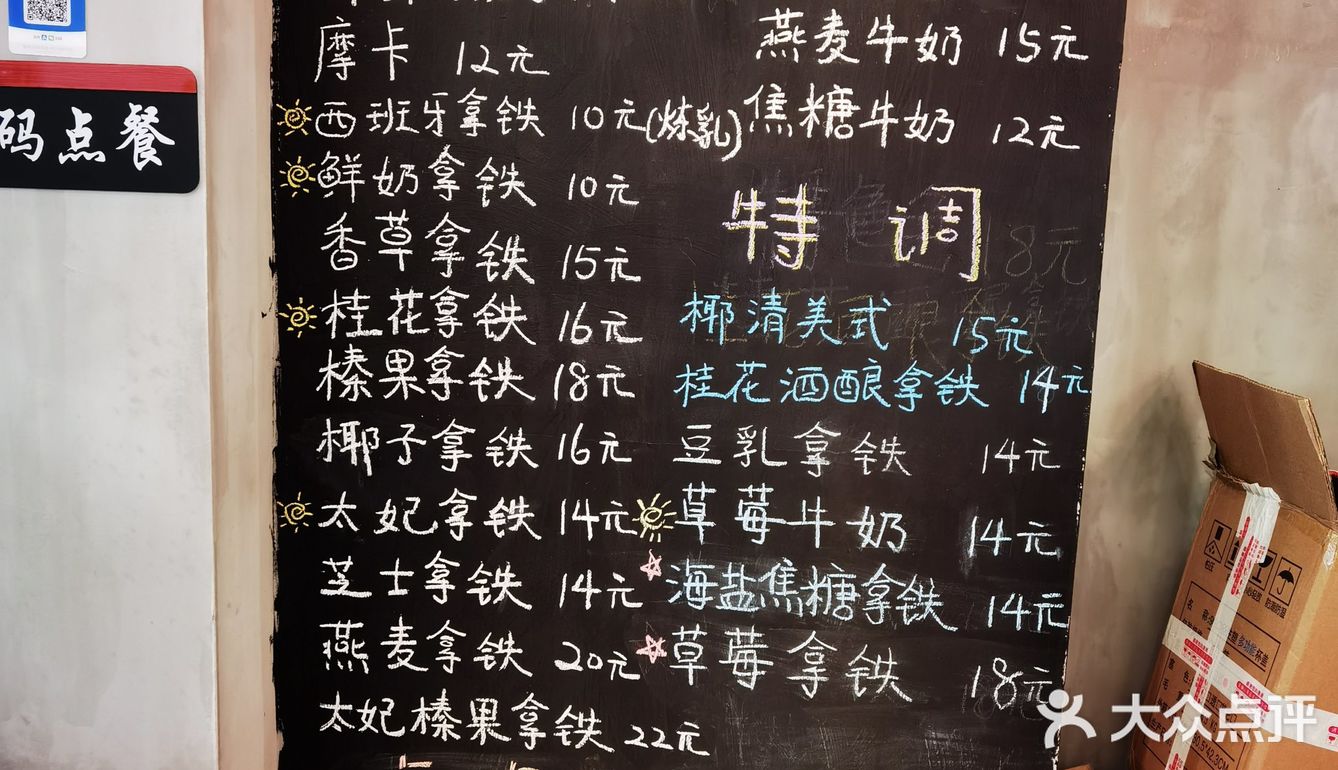 码点餐
摩卡 12元
西班牙拿铁 10元(炼乳)
鲜奶拿铁 10元
香草拿铁 15元
桂花拿铁 16元
榛果拿铁 18元
椰子拿铁 16元
太妃拿铁 14元
芝士拿铁 14元
燕麦拿铁 20元
太妃榛果拿铁 22元
燕麦牛奶 15元
焦糖牛奶 12元
特调
8元
椰清美式 15元
桂花酒酿拿铁 14元
豆乳拿铁 14元
草莓牛奶 14元
海盐焦糖拿铁 14元
草莓拿铁 18元
大众点评